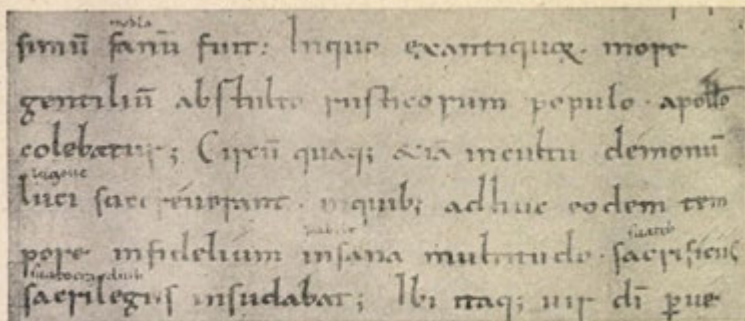 simū fanū fuit; Inquo exantiquoꝝ· more
gentiliū abstulto rusticorum populo· apollo
colebatur; Circū quaq; &iā incultu demonū
luci succreuerant· inquib; adhuc eodem tem
pore infidelium insana multitudo· sacrificiis
sacrilegiis insudabat; Ibi itaq; uir dī ꝑue